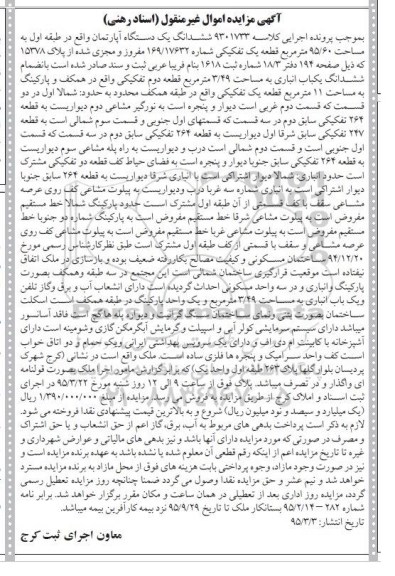 آگهی مزایده اموال غیرمنقول (اسناد رهنی)
بموجب پرونده اجرایی کلاسه ۹۳۰۱۷۳۳ ششدانگ یک دستگاه آپارتمان واقع در طبقه اول به
مساحت ۹۵/۶۰ مترمربع قطعه یک تفکیکی شماره ۱۶۹/۱۷۶۳۲ مفروز و مجزی شده از پلاک ۱۵۳۷۸
که ذیل صفحه ۱۹۴ دفتر ۱۸/۳ شماره ثبت ۱۶۱۸ بنام فریبا عربی ثبت و سند صادر شده است بانضمام
ششدانگ یکباب انباری به مساحت ۳/۴۹ مترمربع قطعه دوم تفکیکی واقع در همکف و پارکینگ
به مساحت ۱۱ مترمربع قطعه یک تفکیکی واقع در طبقه همکف محدود به حدود: شمالا اول در دو
قسمت که قسمت دوم غربی است دیوار و پنجره است به نورگیر مشاعی دوم دیواریست به قطعه
۲۶۴ تفکیکی سابق دوم در سه قسمت که قسمتهای اول جنوبی و قسمت سوم شمالی است به قطعه
۲۴۷ تفکیکی سابق شرقا اول دیواریست به قطعه ۲۶۴ تفکیکی سابق دوم در سه قسمت که قسمت
اول جنوبی است و قسمت دوم شمالی است درب و دیواریست به راه پله مشاعی سوم دیواریست
به قطعه ۲۶۴ تفکیکی سابق جنوبا دیوار و پنجره است به فضای حیاط کف قطعه دو تفکیکی مشترک
است حدود انباری: شمالا دیوار اشتراکی است با انباری شرقا دیواریست به قطعه ۲۶۴ سابق جنوبا
دیوار اشتراکی است به انباری شماره سه غربا درب ودیواریست به پیلوت مشاعی کف روی عرصه
مشاعی و سقف با کف قسمتی از آن طبقه اول مشترک است حدود پارکینگ شمالا خط مستقیم
مفروض است به پیلوت مشاعی شرقا خط مستقیم مفروض است به پارکینگ شماره دو جنوبا خط
مستقیم مفروض است به پیلوت مشاعی غربا خط مستقیم مفروض است به پیلوت مشاعی کف روی
عرصه مشاعی و سقف با قسمتی از کف طبقه اول مشترک است طبق نظرکارشناس رسمی مورخ
۹۴/۱۲/۲۰ ساختمان مسکونی و کیفیت مصالح بکاررفته ضعیف بوده و بازسازی در ملک اتفاق
نیفتاده است موقعیت قرارگیری ساختمان شمالی است این مجتمع در سه طبقه وهمکف بصورت
پارکینگ وانباری و در سه واحد مسکونی احداث گردیده است دارای انشعاب آب و برق وگاز تلفن
ویک باب انباری به مساحت ۳/۴۹ مترمربع و یک واحد پارکینگ در طبقه همکف است اسکلت
ساختمان بصورت بتنی ونمای ساختمان سنگ گرانیت، دیواره پله هاگچ است فاقد آسانسور
میباشد دارای سیستم سرمایشی کولر آبی و اسپیلت و گرمایش آبگرمکن گازی وشومینه است دارای
آشپزخانه با کابینت ام دی اف و دارای یک سرویس بهداشتی ایرانی ویک حمام و دو اتاق خواب
است کف واحد سرامیک و پنجره ها فلزی ساده است. ملک واقع است در نشانی (کرج شهرک
پردیسان بلوار گلها پلاک۲۶۳ طبقه اول واحد یک) که برابر گزارش مامور اجرا ملک بصورت قولنامه
ای واگذار و در تصرف میباشد. پلاک فوق از ساعت ۹ الی ۱۲ روز شنبه مورخ ۹۵/۳/۲۲ در اجرای
ثبت اسناد و املاک کرج از طریق مزایده به فروش می رسد. مزایده از مبلغ ۱/۳۹۰/۰۰۰/۰۰۰ ریال
(یک میلیارد و سیصد و نود میلیون ریال) شروع و به بالاترین قیمت پیشنهادی نقدا فروخته می شود.
لازم به ذکر است پرداخت بدهی های مربوط به آب، برق، گاز اعم از حق انشعاب و یا حق اشتراک
و مصرف در صورتی که مورد مزایده دارای آنها باشد و نیز بدهی های مالیاتی و عوارض شهرداری و
غیره تا تاریخ مزایده اعم از اینکه رقم قطعی آن معلوم شده یا نشده باشد به عهده برنده مزایده است و
نیز در صورت وجود مازاد، وجوه پرداختی بابت هزینه های فوق از محل مازاد به برنده مزایده مسترد
خواهد شد و نیم عشر و حق مزایده نقدا وصول می گردد ضمنا چنانچه روز مزایده تعطیل رسمی
گردد، مزایده روز اداری بعد از تعطیلی در همان ساعت و مکان مقرر برگزار خواهد شد. برابر نامه
شماره ۲۸۲ – ۹۵/۲/۱۴ بستانکار ملک تا تاریخ ۹۵/۹/۲۹ نزد بیمه کارآفرین بیمه میباشد.
تاریخ انتشار: ۹۵/۳/۳
معاون اجرای ثبت کرج